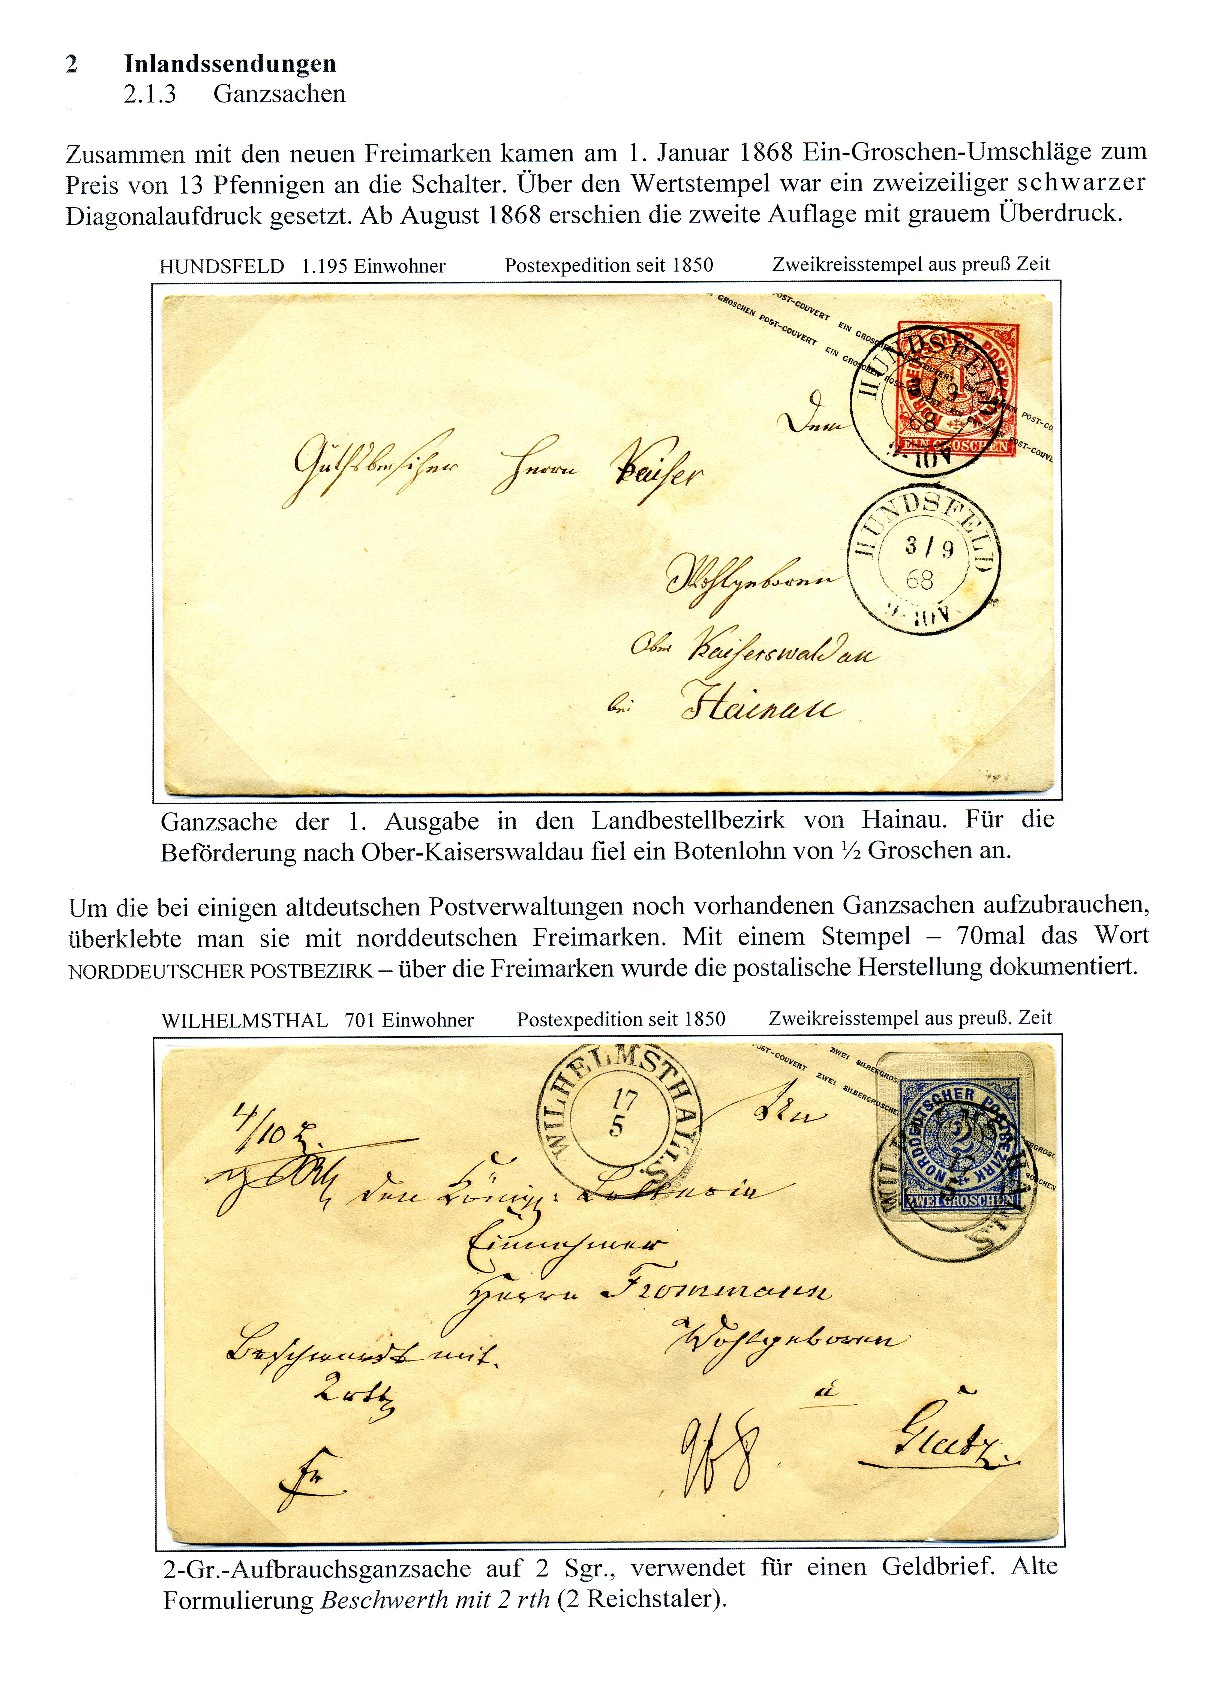 2 Inlandssendungen
2.1.3 Ganzsachen
Zusammen mit den neuen Freimarken kamen am 1. Januar 1868 Ein-Groschen-Umschläge zum
Preis von 13 Pfennigen an die Schalter. Über den Wertstempel war ein zweizeiliger schwarzer
Diagonalaufdruck gesetzt. Ab August 1868 erschien die zweite Auflage mit grauem Überdruck.
HUNDSFELD 1.195 Einwohner Postexpedition seit 1850 Zweikreisstempel aus preuß Zeit
OST-COUVERT EIN GROSCHEN
GROSCHEN POST-COUVERT EIN GROSCHEN
NORDDEUTSCHER POSTBEZIRK
1
EIN GROSCHEN
HUNDSFELD
3/9
68
Dem
Guthsbesitzer Herrn Kaiser
HUNDSFELD
3/9
68
Wohlgeboren
Ober Kaiserswaldau
bei Hainau
Ganzsache der 1. Ausgabe in den Landbestellbezirk von Hainau. Für die
Beförderung nach Ober-Kaiserswaldau fiel ein Botenlohn von ½ Groschen an.
Um die bei einigen altdeutschen Postverwaltungen noch vorhandenen Ganzsachen aufzubrauchen,
überklebte man sie mit norddeutschen Freimarken. Mit einem Stempel – 70mal das Wort
NORDDEUTSCHER POSTBEZIRK – über die Freimarken wurde die postalische Herstellung dokumentiert.
WILHELMSTHAL 701 Einwohner Postexpedition seit 1850 Zweikreisstempel aus preuß. Zeit
OST-COUVERT ZWEI SILBERGROSCHEN
ZWEI SILBERGROS
WILHELMSTHAL I.S.
17
5
NORDDEUTSCHER POSTBEZIRK
2
ZWEI GROSCHEN
4/10
An
den Königl: Lotterie
Einnehmer
Herrn Frommann
Wohlgeboren
Beschwerth mit
2 rth
Fr
968
Glatz.
2-Gr.-Aufbrauchsganzsache auf 2 Sgr., verwendet für einen Geldbrief. Alte
Formulierung Beschwerth mit 2 rth (2 Reichstaler).